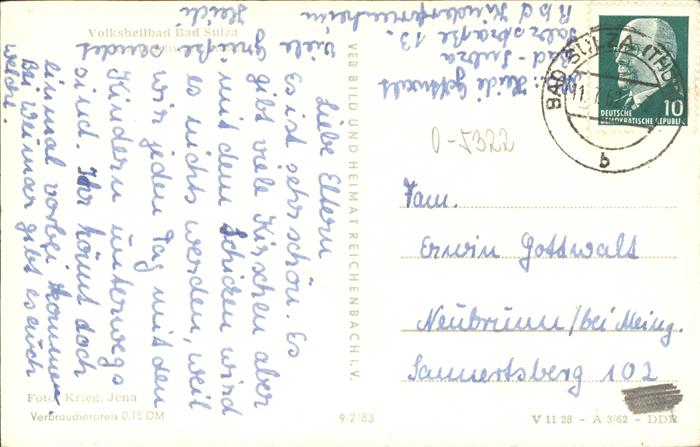 Volksheilbad Bad Sulza
Liebe Eltern
Es ist sehr schön. Es
gibt viele Kirschen aber
mit dem Schicken wird
es nichts werden, weil
wir jeden Tag mit den
Kindern unterwegs
sind. Ihr könnt doch
einmal vorbei kommen
Bei Weimar gibt es auch
welche.
Viele
Grüße
sendet
Heidi
Foto: Krieg, Jena
Verbraucherpreis 0.15 DM
9/2'83
VEB BILD UND HEIMAT REICHENBACH I. V.
Heidi Gottwalt
Bad-Sulza
Salzstraße 13.
Kinderferienheim
BAD SULZA
b
10
DEUTSCHE
DEMOKRATISCHE REPUBLIK
0-5322
Fam.
Erwin Gottwalt
Neubrunn/bei Meing.
Sannertsberg 102
V 11 28 - A 3/62 - DDR